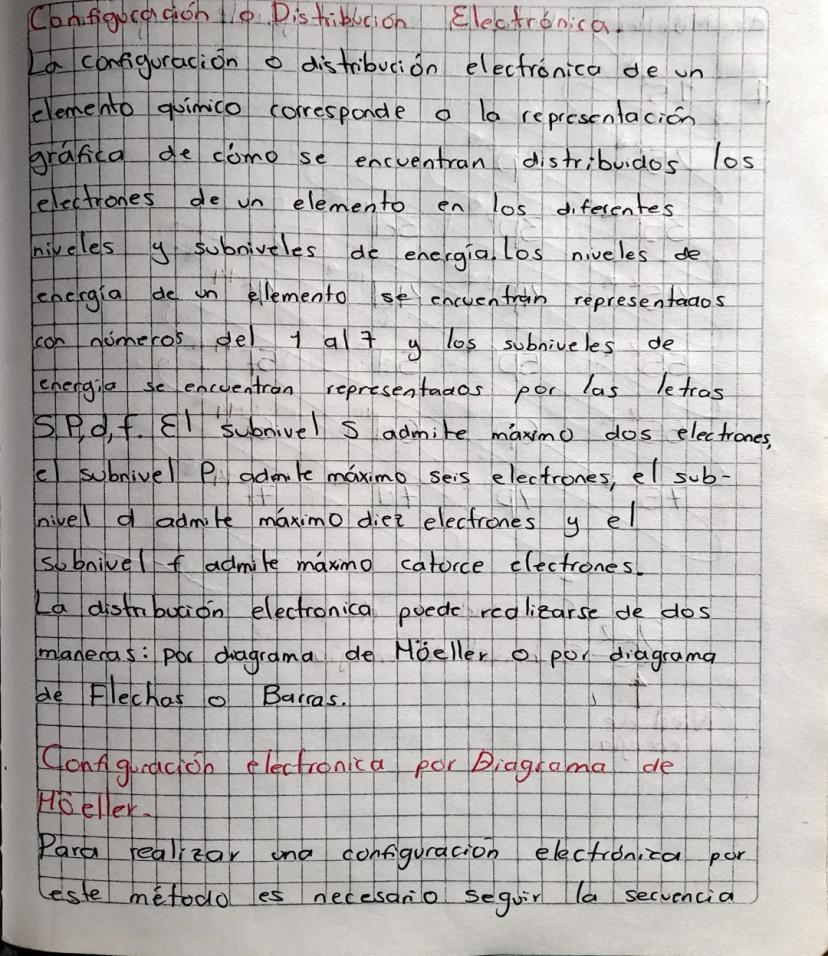 Configuración o Distribución Electrónica.
La configuración o distribución electrónica de un
elemento químico corresponde a la representación
gráfica de cómo se encuentran distribuidos los
electrones de un elemento en los diferentes
niveles y subniveles de energía. Los niveles de
energía de un elemento se encuentran representados
con números del 1 al 7 y los subniveles de
energía se encuentran representados por las letras
S, P, d, f. El subnivel S admite máximo dos electrones,
el subnivel P, admite máximo seis electrones, el sub-
nivel d admite máximo diez electrones y el
subnivel f admite máximo catorce electrones.
La distribución electronica puede realizarse de dos
maneras: por diagrama de Möeller o por diagrama
de Flechas o Barras.
Configuración electronica por Diagrama de
Möeller.
Para realizar una configuración electrónica por
este método es necesario seguir la secuencia